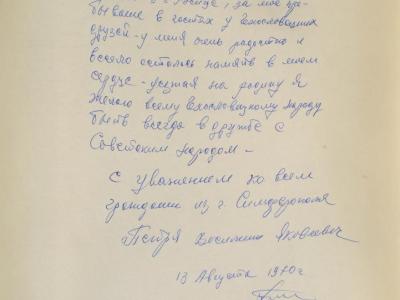 за мое пре-
бывание в гостях у Чехословацких
друзей - у меня очень радостно и
весело осталось память в моем
сердце - уезжая на родину я
желаю всему чехословацкому народу
быть всегда в дружбе с
Советским народом -
С уважением ко всем
граждани из г. Симферополя
Яковлевич
13 Августа 1970 г